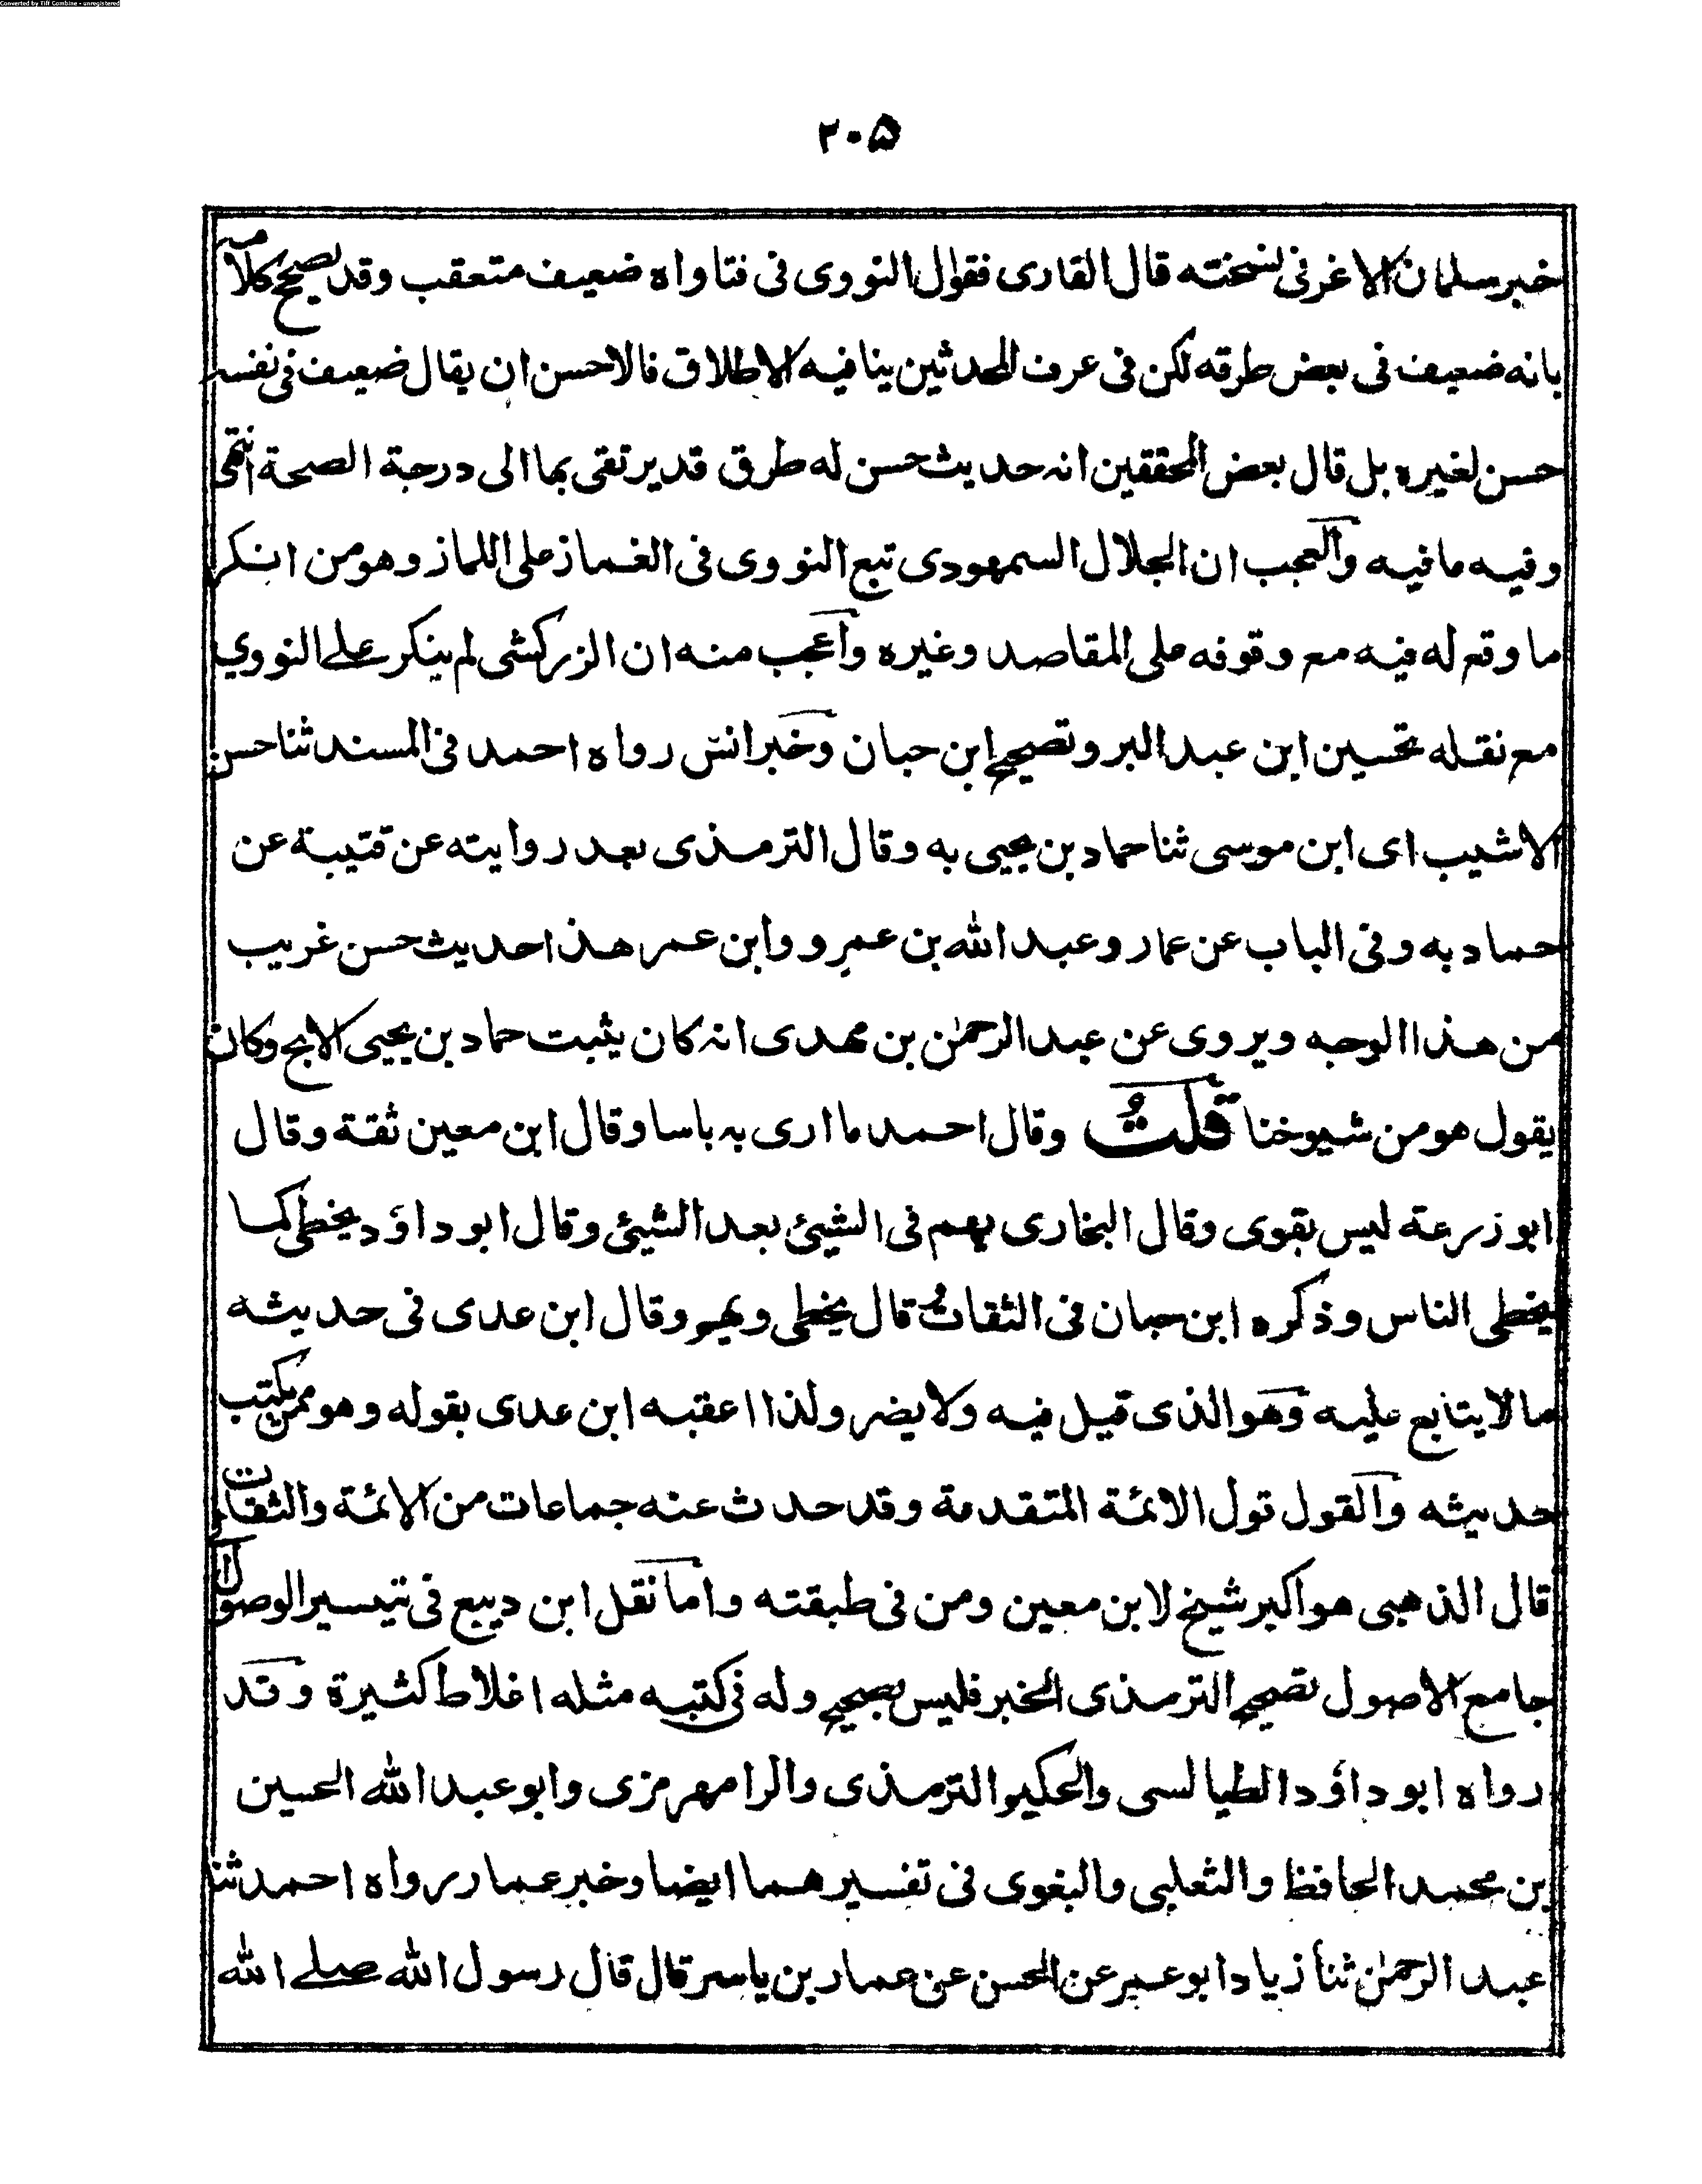 Converted by Tiff Combine - unregistered
٢٠٥
خبر سلمان الاغر فی نسخته قال القاری فقول النووی فی فتاواه ضعیف متعقب وقد یصحح کلامه
بانه ضعیف فی بعض طرقه لکن فی عرف المحدثین ینافیه الاطلاق فالاحسن ان یقال ضعیف فی نفسه
حسن لغیره بل قال بعض المحققین انه حدیث حسن له طرق قد یرتقی بها الی درجة الصحة انتهی
وفیه ما فیه والعجب ان الجلال السمهودی تبع النووی فی الغماز علی اللماز وهو من انکر
ما وقع له فیه مع وقوفه علی المقاصد وغیره واعجب منه ان الزرکشی لم ینکر علے النووي
مع نقله تحسین ابن عبد البر وتصحیح ابن حبان وخبر انس رواه احمد فی المسند ثنا حسن
الاشیب ای ابن موسی ثنا حماد بن یحیی به وقال الترمذی بعد روایته عن قتیبة عن
حماد به وفی الباب عن عمار وعبد الله بن عمرو وابن عمر هذا حدیث حسن غریب
من هذا الوجه ویروی عن عبد الرحمٰن بن مهدی انه کان یثبت حماد بن یحیی الابح وکان
یقول هو من شیوخنا قلتُ وقال احمد ما اری به باسا وقال ابن معین ثقة وقال
ابو زرعة لیس بقوی وقال البخاری یهم فی الشیئ بعد الشیئ وقال ابو داؤد یخطی کما
یخطی الناس وذکره ابن حبان فی الثقات و قال یخطی ویهم وقال ابن عدی فی حدیثه
ما لا یتابع علیه وهو الذی قیل فیه ولا یضر ولذا اعقبه ابن عدی بقوله وهو ممن یکتب
حدیثه والقول قول الائمة المتقدمة وقد حدث عنه جماعات من الائمة والثقات
قال الذهبی هو اکبر شیخ لابن معین ومن فی طبقته واما نقل ابن دیبع فی تیسیر الوصول الی
جامع الاصول تصحیح الترمذی الخبر فلیس بصحیح وله فی کتبه مثله اغلاط کثیرة وقد
رواه ابو داؤد الطیالسی والحکیم الترمذی والرامهرمزی وابو عبد الله الحسین
بن محمد الحافظ والثعلبی والبغوی فی تفسیرهما ایضا وخبر عمار رواه احمد ثنا
عبد الرحمٰن ثنا زیاد ابو عمر عن الحسن عن عمار بن یاسر قال قال رسول الله صلے الله